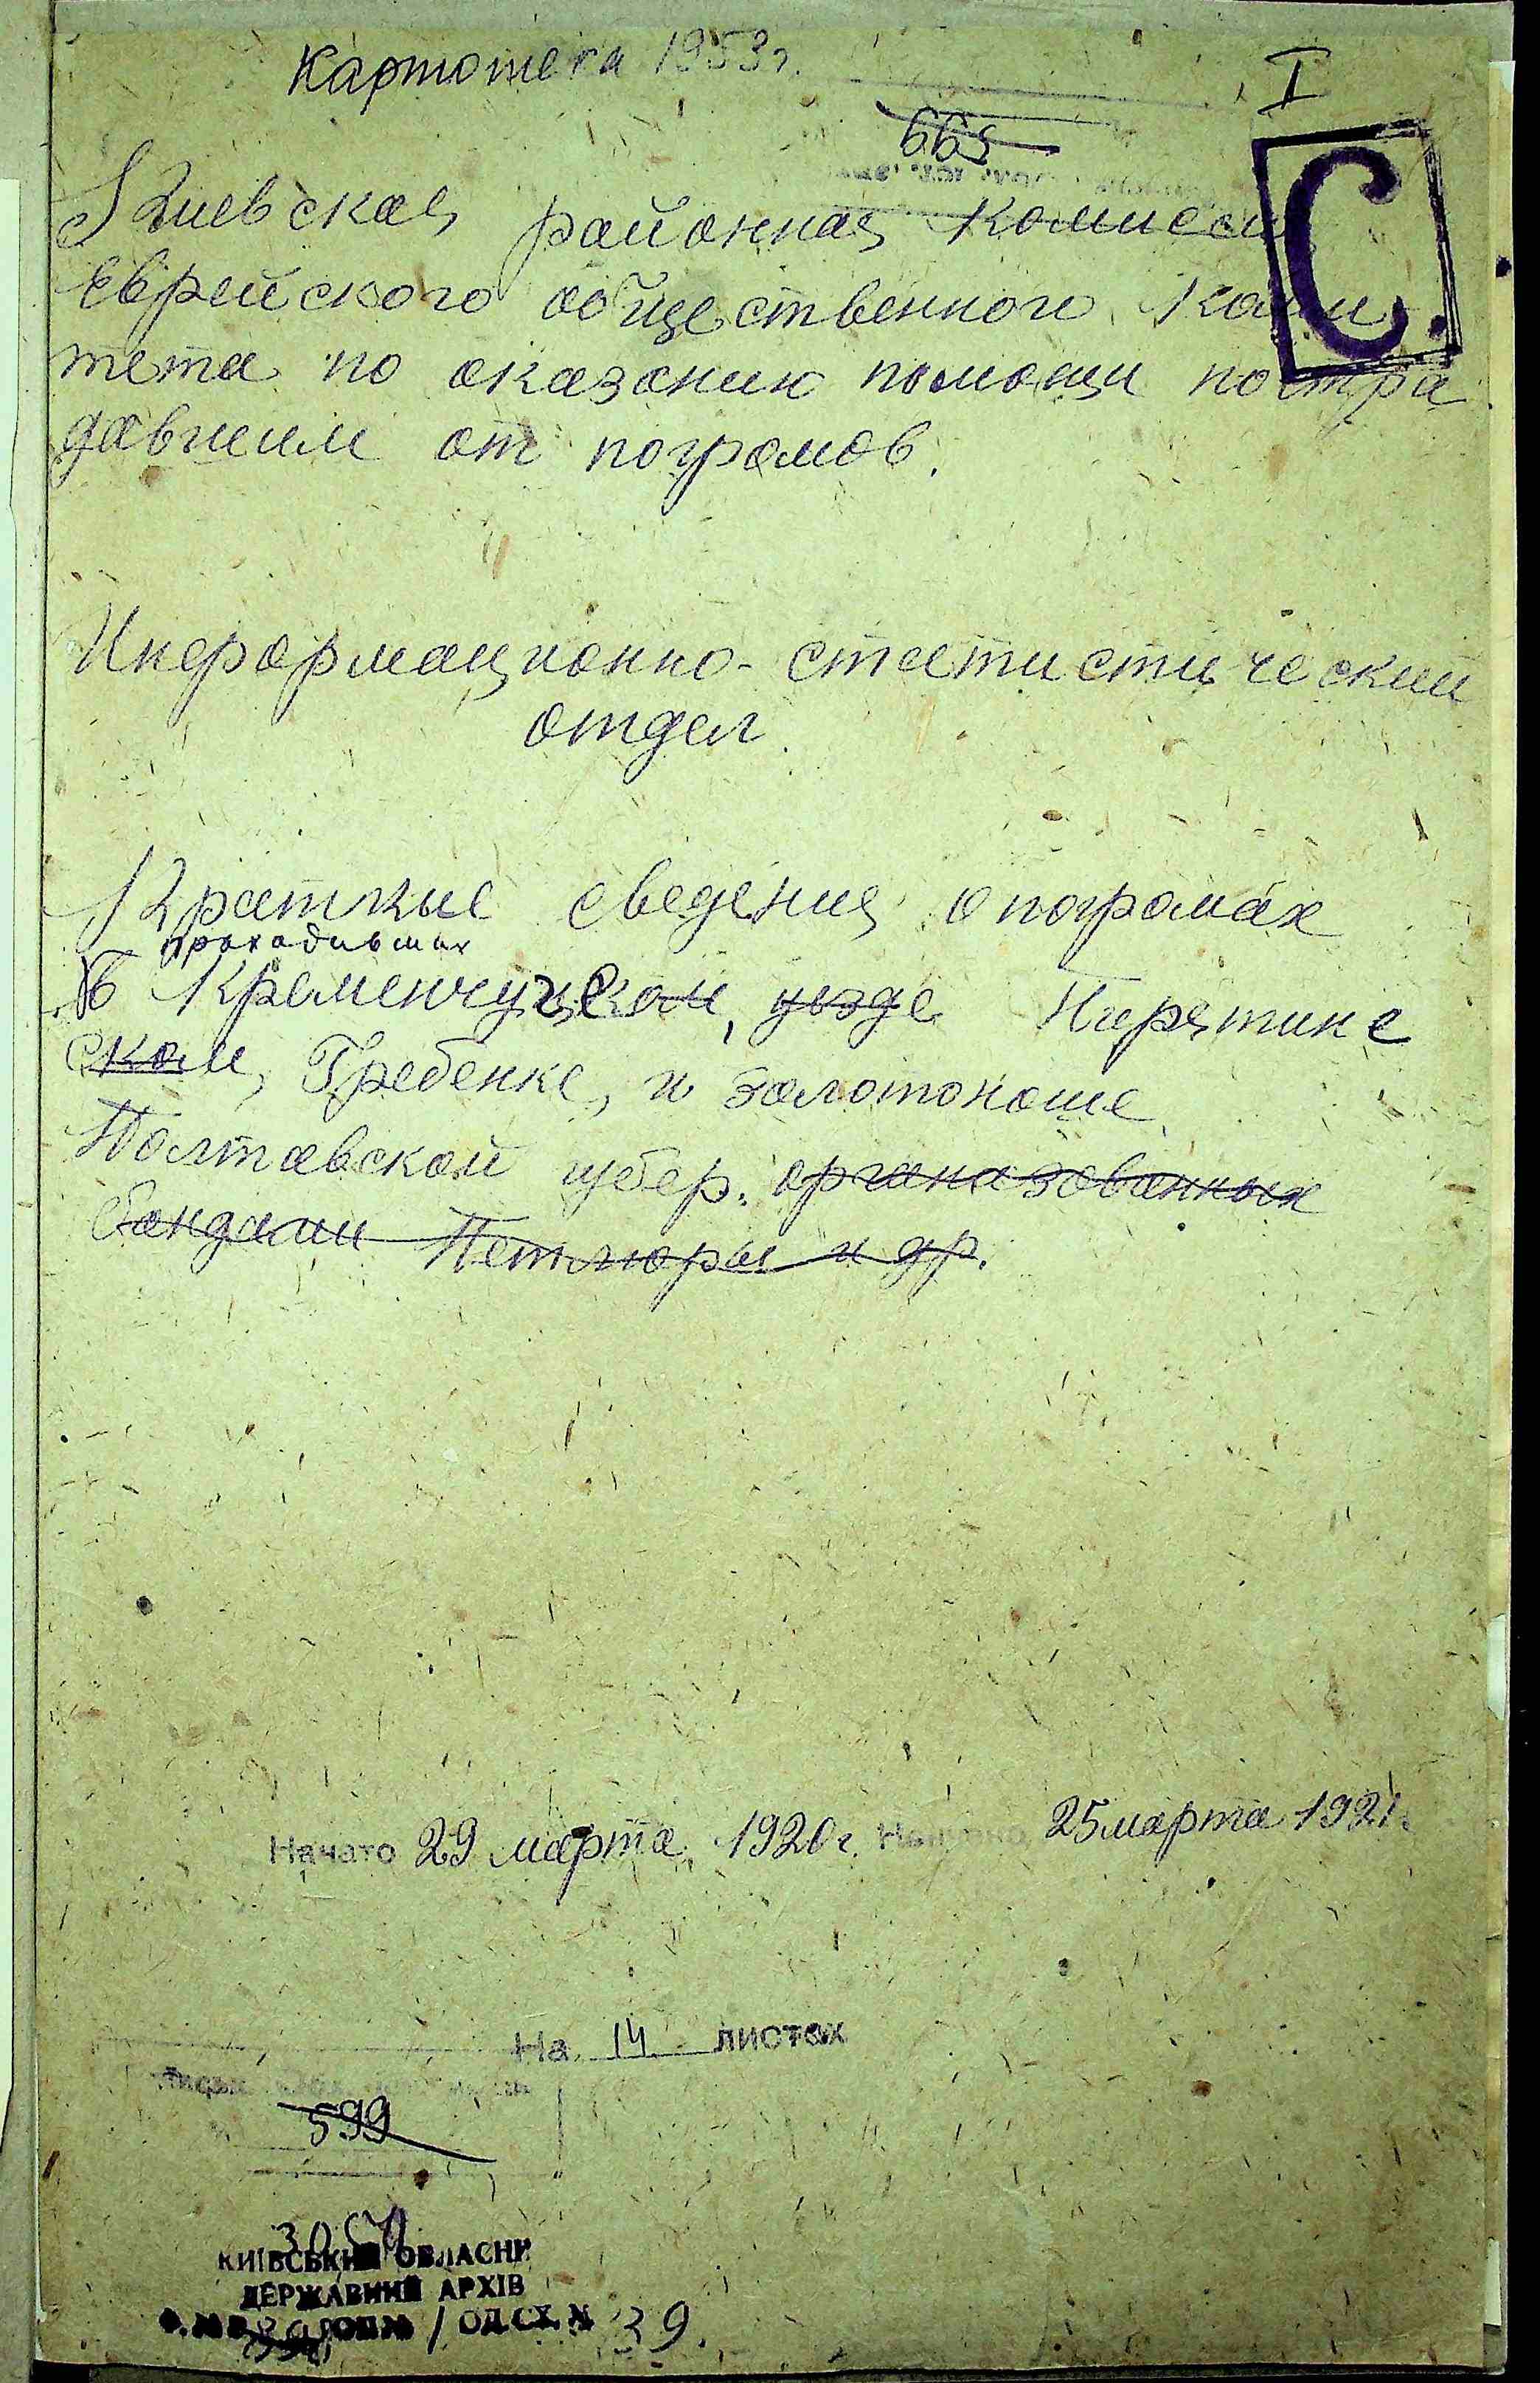 Картотека 1953 г.
I
665
С.
Киевская районная комиссия
Еврейского общественного коми
тета по оказанию помощи постра
давшим от погромов.
Информационно-статистический
отдел.
Краткие сведения о погромах
проходивших
в Кременчугском, уезде Пирятине
ском, Гребенке, и Золотоноше
Полтавской губер. организованных
бандами Петлюры и др.
Начато 29 марта 1920 г. 25 марта 1921.
На 14 листах
599
КИЇВСЬКИЙ ОБЛАСНИЙ
ДЕРЖАВНИЙ АРХІВ
ОП № 1 ОД.СХ. № 39.